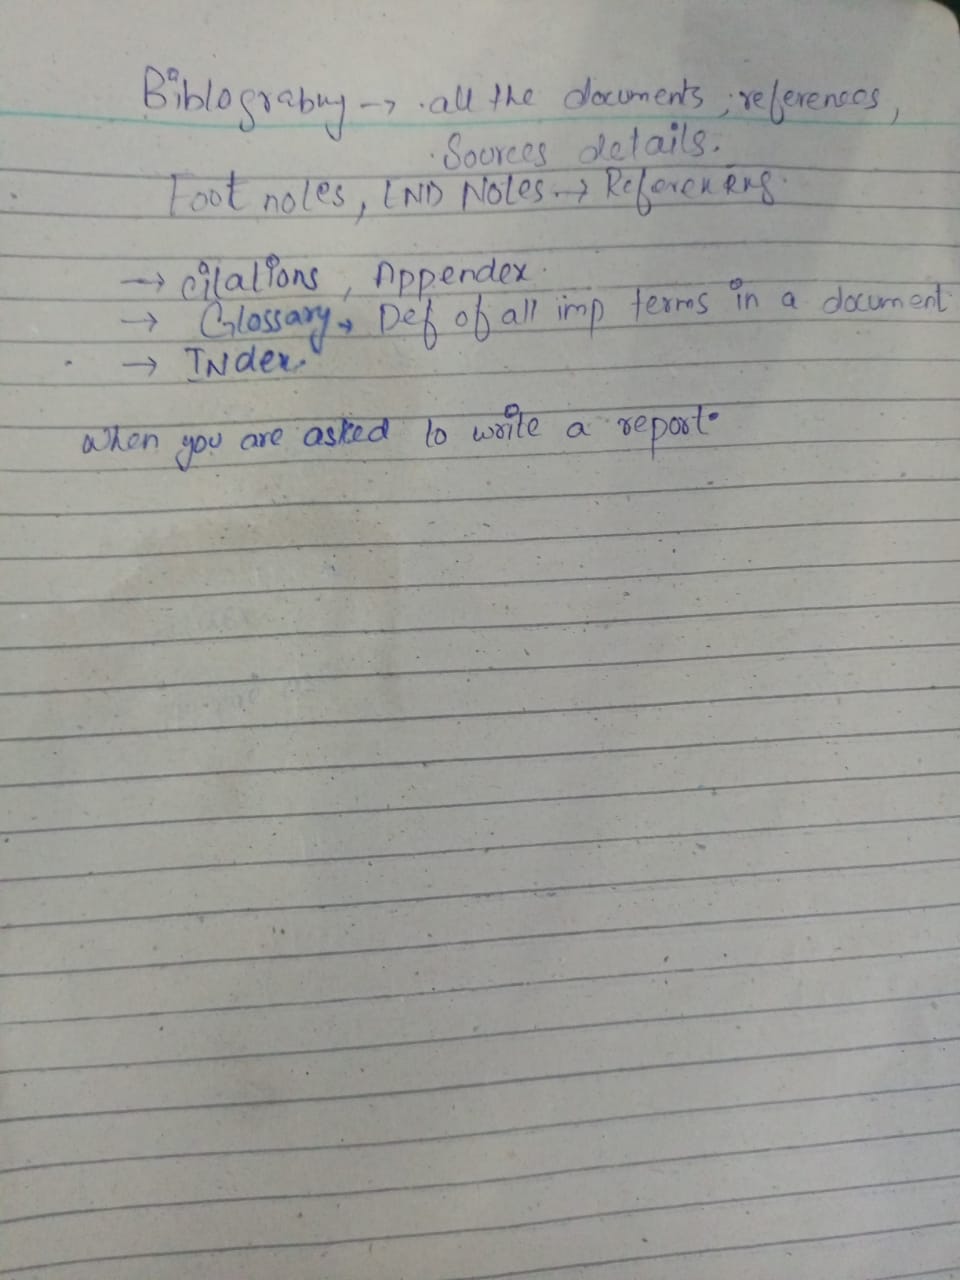 Biblograbuy → all the documents, references,
Sources details.
Foot notes, END Notes → References.
→ citations, Appendex.
→ Glossary → Def of all imp terms in a document
→ INdex.
when you are asked to write a report.